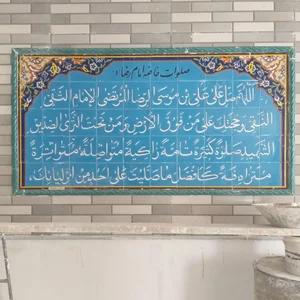 صلوات خاصه امام رضا
اللهم صل علی علی بن موسی الرضا المرتضی الإمام التقی
النقی و حجتک علی من فوق الأرض و من تحت الثری الصدیق
الشهید صلوة کثیرة تامة زاکیة متواصلة متواترة
مترادفة کافضل ما صلیت علی احد من اولیائک